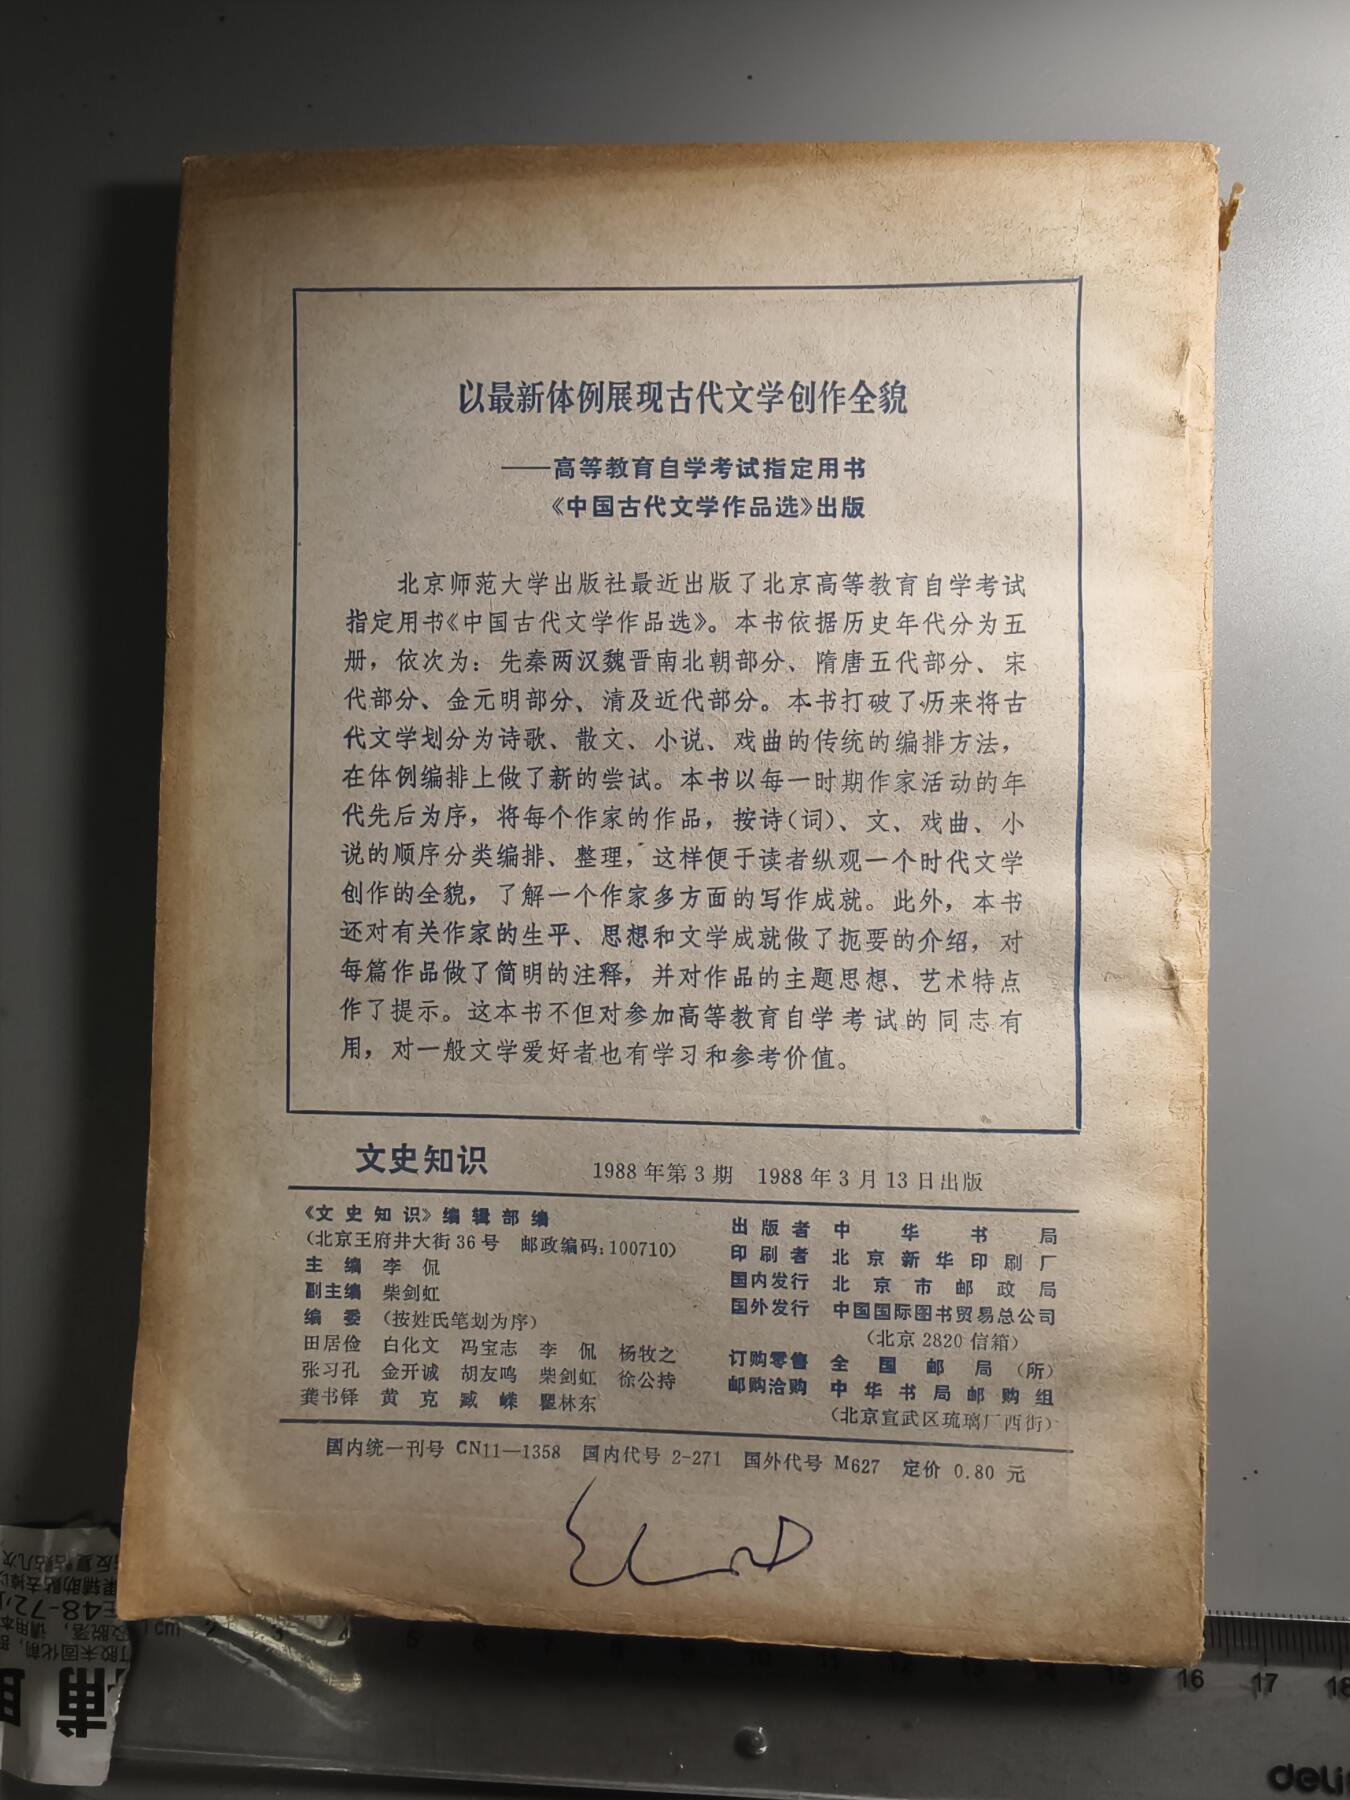 以最新体例展现古代文学创作全貌
——高等教育自学考试指定用书
《中国古代文学作品选》出版
北京师范大学出版社最近出版了北京高等教育自学考试
指定用书《中国古代文学作品选》。本书依据历史年代分为五
册，依次为：先秦两汉魏晋南北朝部分、隋唐五代部分、宋
代部分、金元明部分、清及近代部分。本书打破了历来将古
代文学划分为诗歌、散文、小说、戏曲的传统的编排方法，
在体例编排上做了新的尝试。本书以每一时期作家活动的年
代先后为序，将每个作家的作品，按诗（词）、文、戏曲、小
说的顺序分类编排、整理，这样便于读者纵观一个时代文学
创作的全貌，了解一个作家多方面的写作成就。此外，本书
还对有关作家的生平、思想和文学成就做了扼要的介绍，对
每篇作品做了简明的注释，并对作品的主题思想、艺术特点
作了提示。这本书不但对参加高等教育自学考试的同志有
用，对一般文学爱好者也有学习和参考价值。
文史知识 1988年第3期 1988年3月13日出版
《文史知识》编辑部编
（北京王府井大街36号 邮政编码：100710）
主编 李侃
副主编 柴剑虹
编委 （按姓氏笔划为序）
田居俭 白化文 冯宝志 李侃 杨牧之
张习孔 金开诚 胡友鸣 柴剑虹 徐公持
龚书铎 黄克 臧嵘 瞿林东
出版者 中华书局
印刷者 北京新华印刷厂
国内发行 北京市邮政局
国外发行 中国国际图书贸易总公司
（北京2820信箱）
订购零售 全国邮局（所）
邮购洽购 中华书局邮购组
（北京宣武区琉璃厂西街）
国内统一刊号 CN11—1358 国内代号 2-271 国外代号 M627 定价 0.80 元
1cm 2 3 5 6 7 8 9 10 11 12 13 14 15 16 17 18
deli